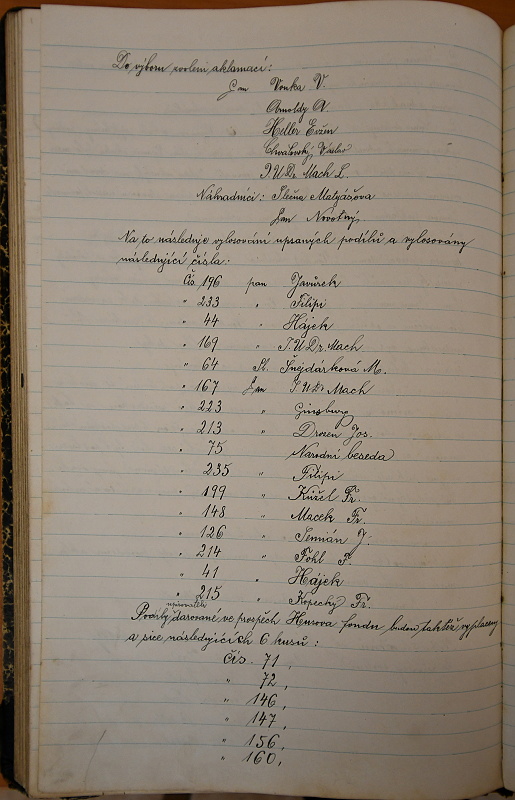 Do výboru zvoleni aklamací:
Pan Vonka V.
Arnoldy A.
Heller Evžen
Chvalovský Václav
JUDr. Mach L.
Náhradníci: Slečna Matyášova
Pan Novotný
Na to následuje vylosování upsaných podílů a vylosovány
následující čísla:
Čís. 196 pan Javůrek
" 233 " Filipi
" 44 " Hájek
" 169 " J.U.Dr. Mach
" 64 Sl. Šnejdárková M.
" 167 Pan JUDr Mach
" 223 " Ginsburg
" 213 " Drozen Jos.
" 75 Narodní beseda
" 235 " Filipi
" 199 " Kužel Fr.
" 148 " Macek Fr.
" 126 " Semián J.
" 214 " Pohl F.
" 41 " Hájek
" 215 " Kopecký Fr.
Podíly darované ve prospěch Husova fondu budou taktéž vyplaceny
a sice následujících 6 kusů:
Čís. 71,
" 72,
" 146,
" 147,
" 156,
" 160,